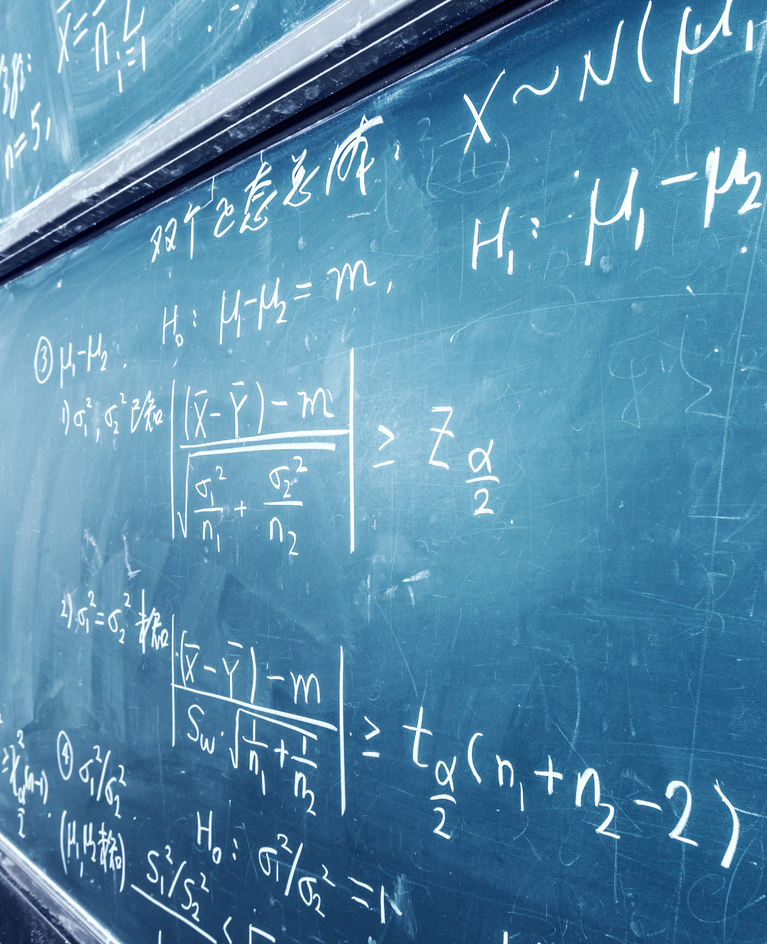 X̄ = 1/n Σ i=1
n=5,
双个正态总体: X ~ N(μ₁
H₀: μ₁-μ₂ = m, H₁: μ₁-μ₂
③ μ₁-μ₂.
1) σ₁², σ₂² 已知 |((X̄-Ȳ)-m)/√(σ₁²/n₁ + σ₂²/n₂)| ≥ Z_{α/2}
2) σ₁² = σ₂² 未知 |((X̄-Ȳ)-m)/(S_w·√(1/n₁ + 1/n₂))| ≥ t_{α/2}(n₁+n₂-2)
≥ χ²_{α/2}(n-1)
④ σ₁²/σ₂²
(μ₁μ₂未知) H₀: σ₁²/σ₂² =
S₁²/S₂²